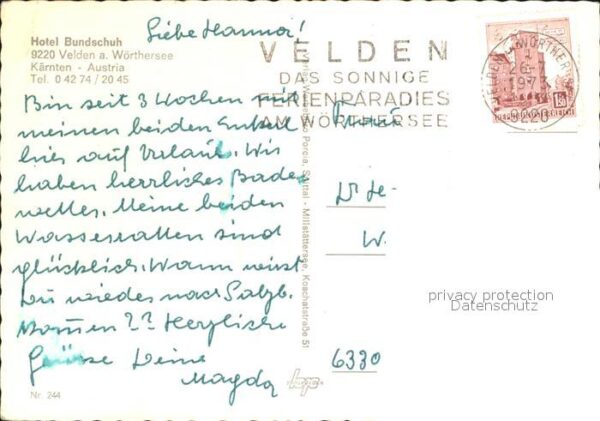 Liebe Hanna!
Hotel Bundschuh
9220 Velden a. Wörthersee
Kärnten - Austria
Tel. 0 42 74 / 20 45
VELDEN
DAS SONNIGE
FERIENPARADIES
AM WÖRTHERSEE
1973
9220
Bin seit 3 Wochen mit
meinen beiden Enkel
hier auf Urlaub. Wir
haben herrliches Bade
wetter. Meine beiden
Wasserratten sind
glücklich. Wann wirst
Du wieder nach Salzb.
kommen?? Herzliche
Grüsse Deine
Magda
Frau
W.
6330
Spittal - Millstättersee, Koschatstraße 51
privacy protection
Datenschutz
Nr. 244